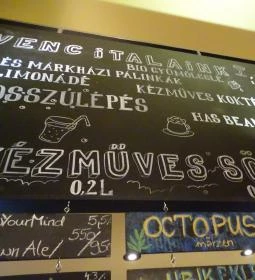 VENC iTALAINK
ÉS MÁRKHÁZI PÁLINKÁK
BIO GYÜMÖLCSLÉ
LIMONÁDÉ
KÉZMŰVES KOKT
OSSZÚLÉPÉS
HAS BEAN
KÉZMŰVES SÖ
0,2L
0,
YourMind 5,5%
550/
wn Ale/ 950
OCTOPUS
märzen